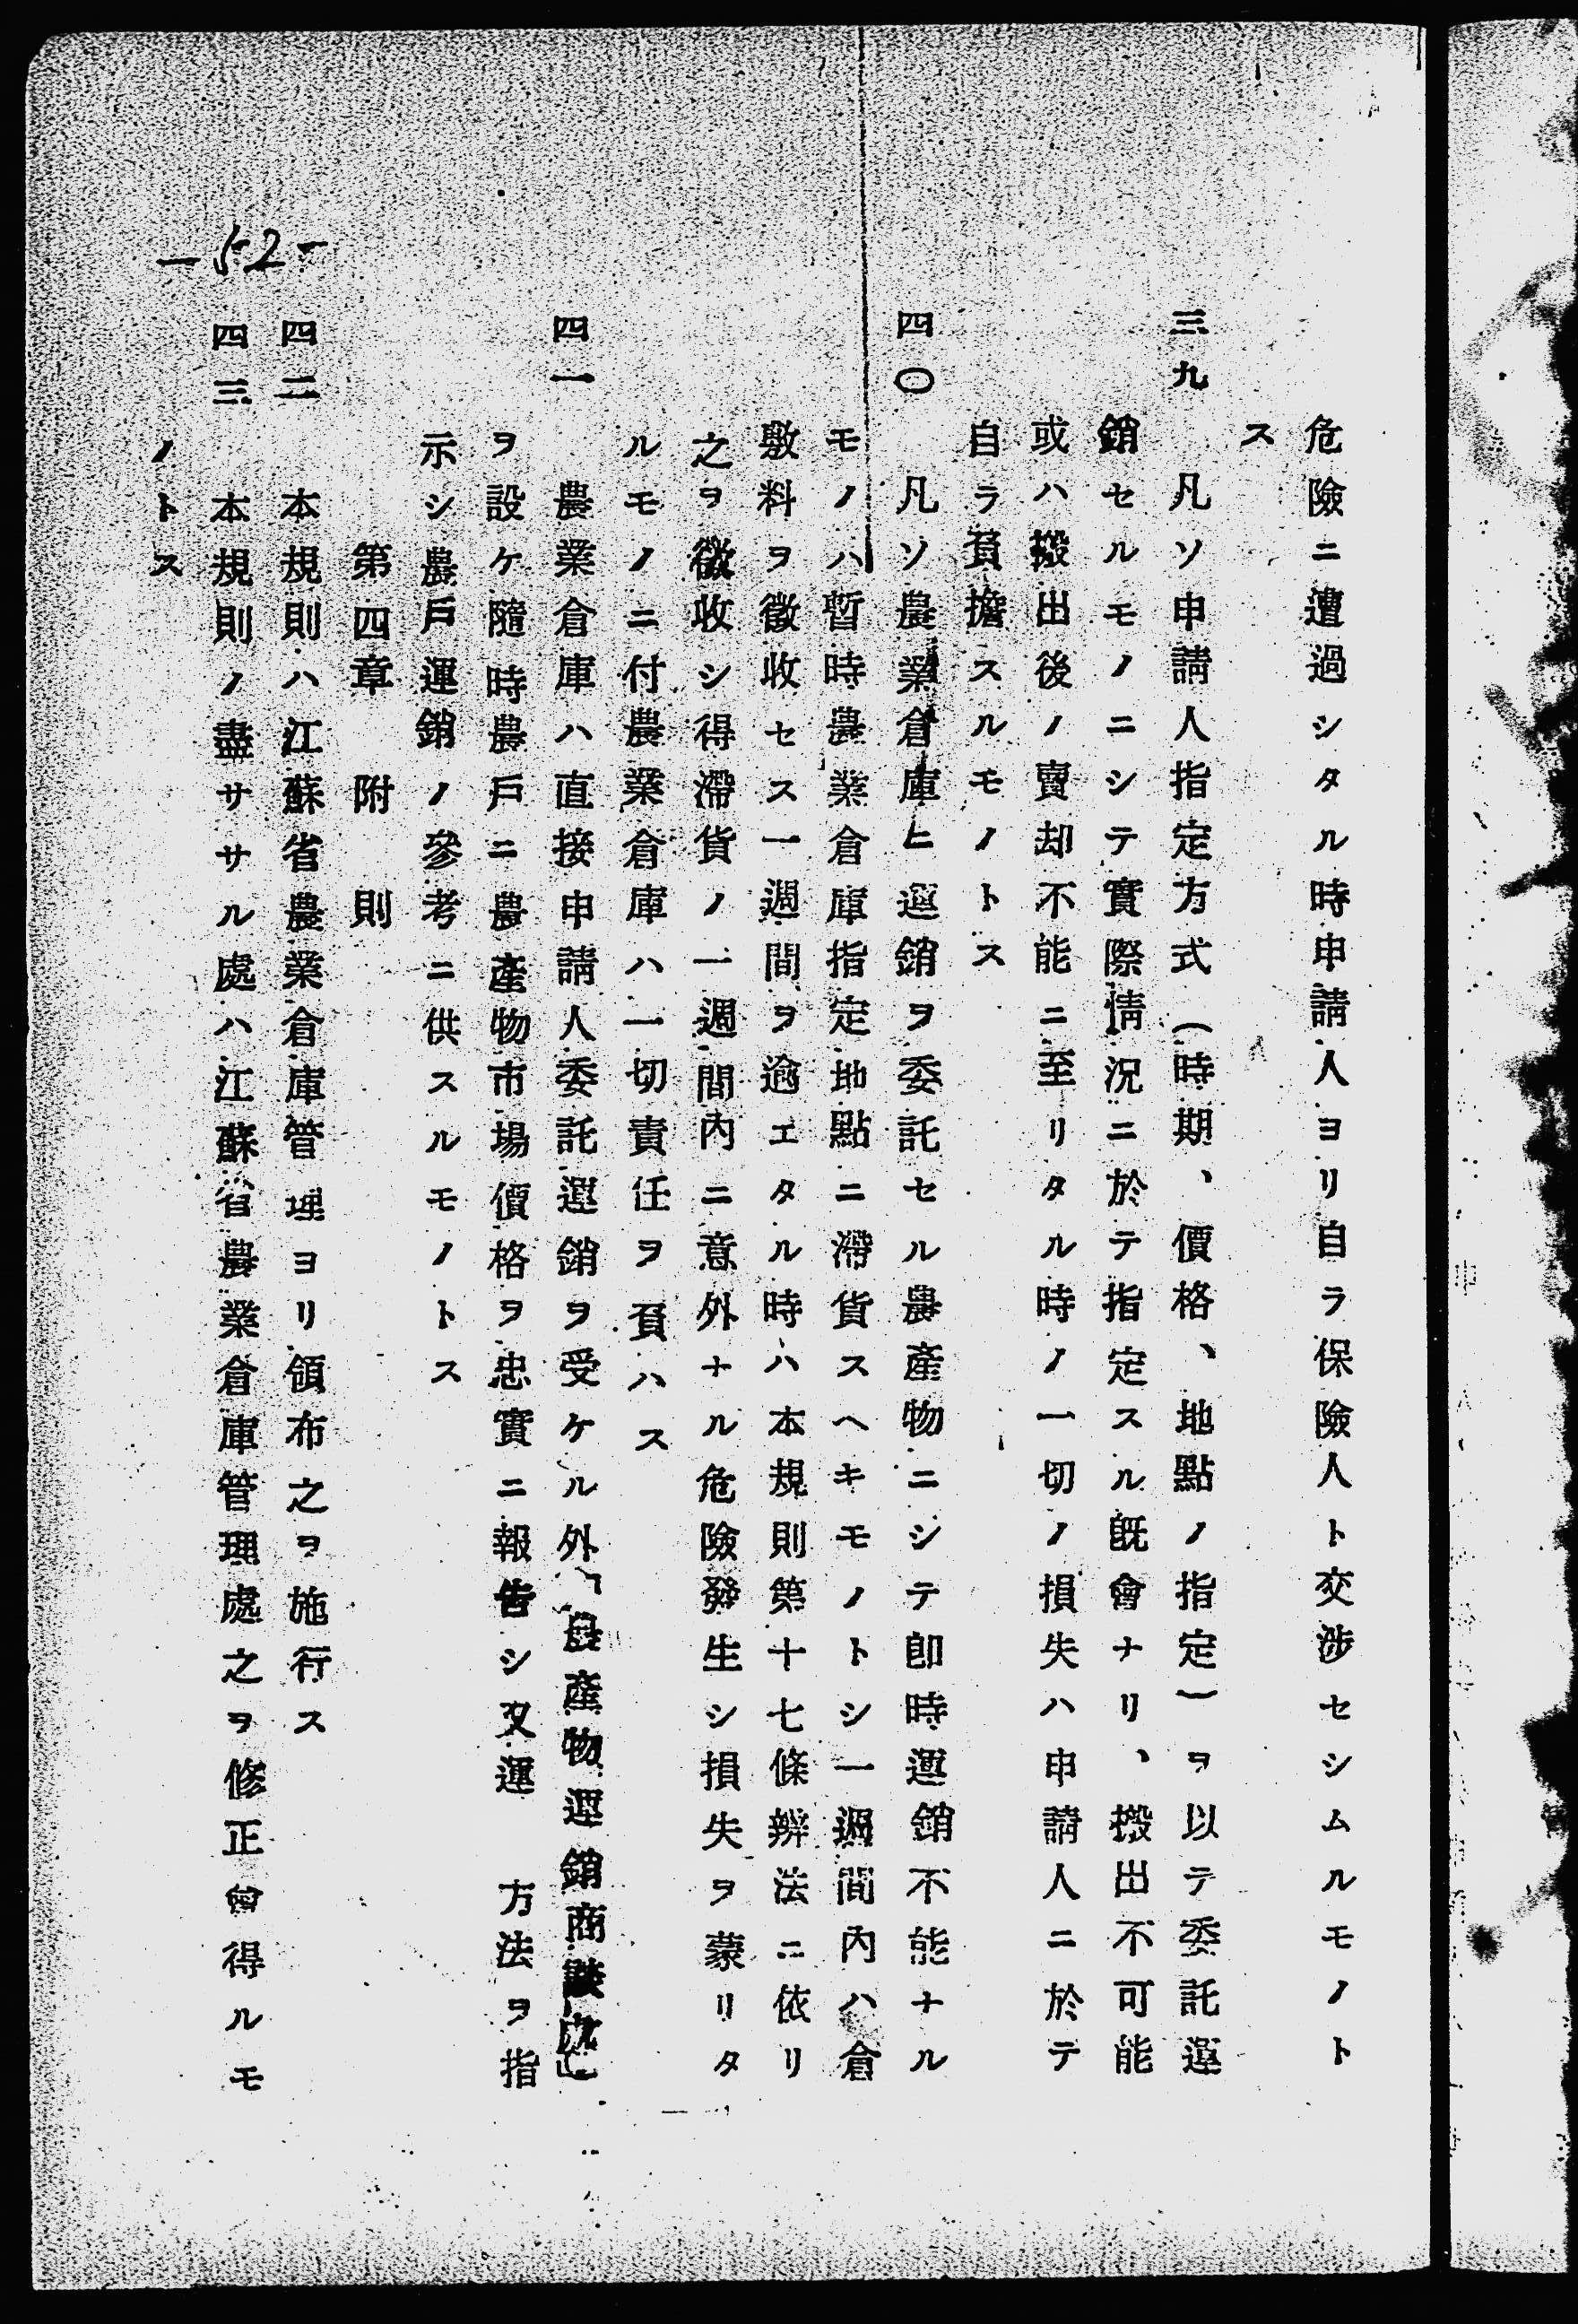 危險ニ遭過シタル時申請人ヨリ自ラ保險人ト交渉セシムルモノト
ス
三九　凡ソ申請人指定方式(時期、價格、地點ノ指定)ヲ以テ委託運
銷セルモノニシテ實際情況ニ於テ指定スル旣會ナリ、搬出不可能
或ハ搬出後ノ賣却不能ニ至リタル時ノ一切ノ損失ハ申請人ニ於テ
自ラ負擔スルモノトス
四〇　凡ソ農業倉庫ヒ運銷ヲ委託セル農產物ニシテ卽時運銷不能ナル
モノハ暫時農業倉庫指定地點ニ滯貨スヘキモノトシ一週間內ハ倉
敷料ヲ徵收セス一週間ヲ逾エタル時ハ本規則第十七條辨法ニ依リ
之ヲ徵收シ得滯貨ノ一週間內ニ意外ナル危險發生シ損失ヲ蒙リタ
ルモノニ付農業倉庫ハ一切責任ヲ負ハス
四一　農業倉庫ハ直接申請人委託運銷ヲ受ケル外「農產物運銷商談處」
ヲ設ケ隨時農戶ニ農產物市場價格ヲ忠實ニ報告シ又運　方法ヲ指
示シ農戶運銷ノ參考ニ供スルモノトス
第四章　附　則
四二　本規則ハ江蘇省農業倉庫管理ヨリ領布之ヲ施行ス
四三　本規則ノ盡サザル處ハ江蘇省農業倉庫管理處之ヲ修正曾得ルモ
ノトス
—52—